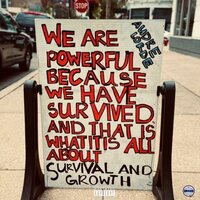 STOP
WE ARE
POWERFUL
BECAUSE
WE HAVE
SURVIVED
AND THAT IS
WHAT IT IS ALL
ABOUT
SURVIVAL AND
GROWTH
AUDRE
LORDE